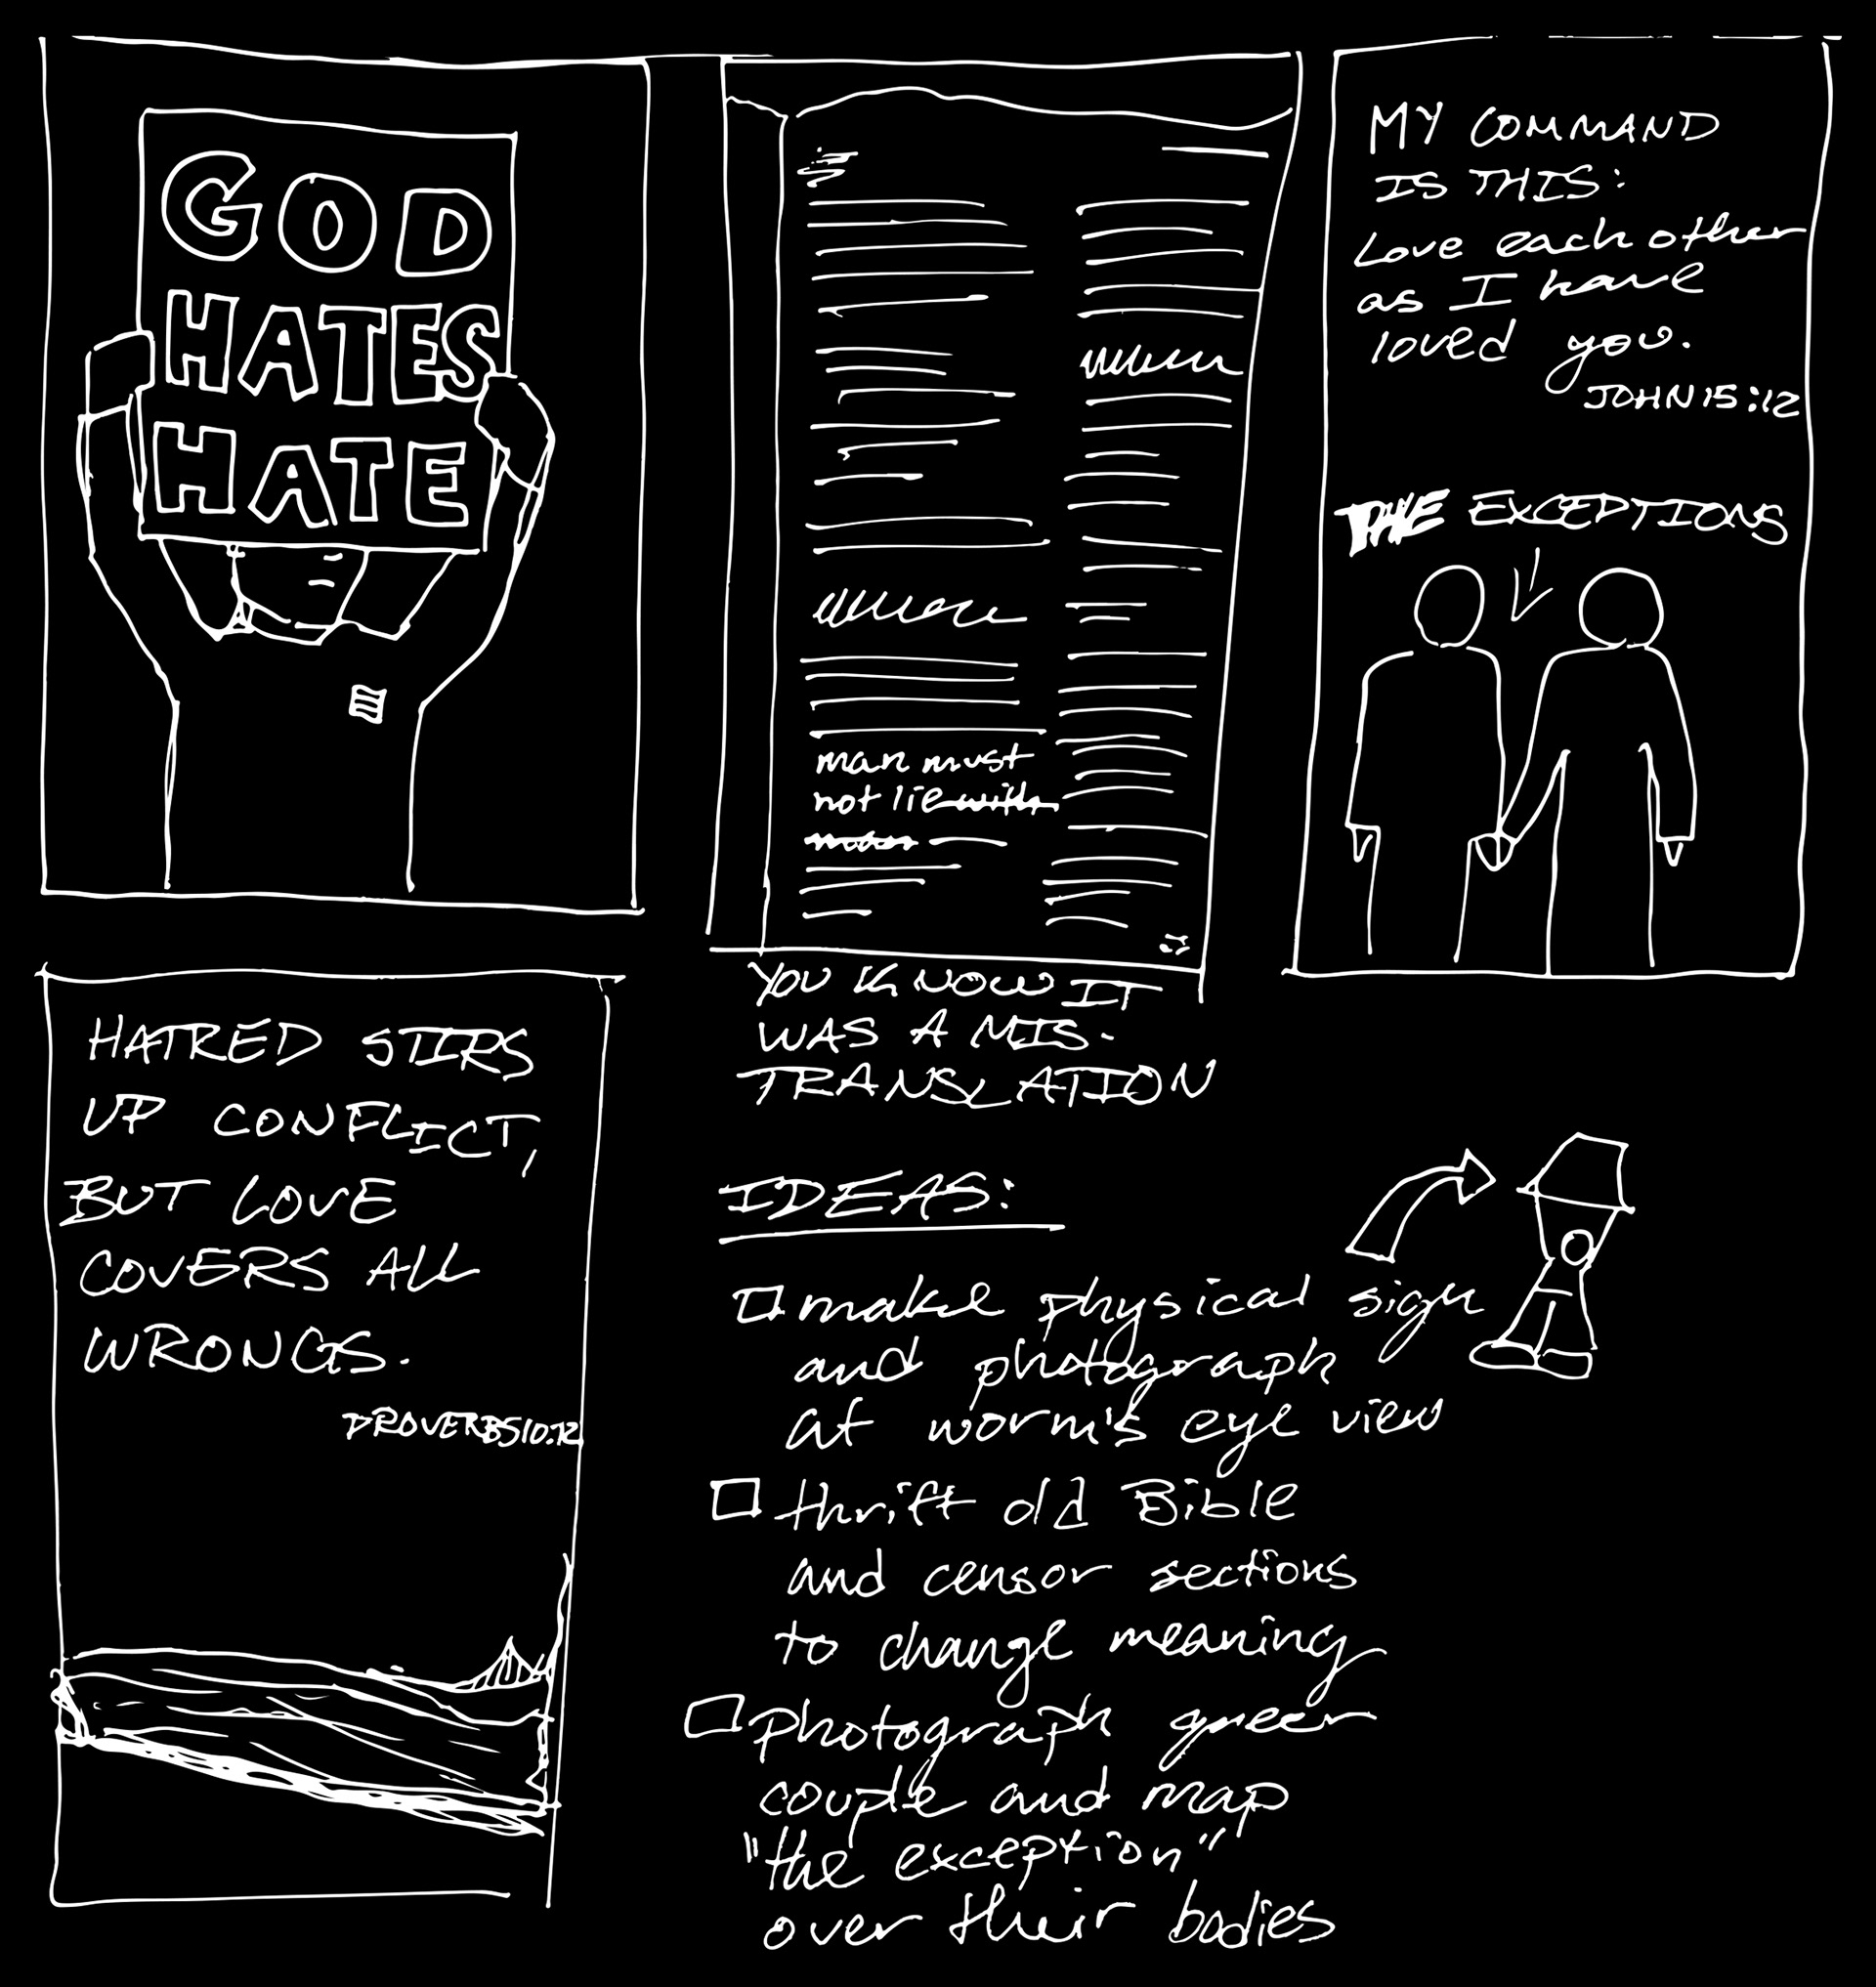 GOD
HATES
HATE
man must
not lie with
MY COMMAND
IS THIS:
Love each other
as I have
loved you.
JOHN 15:12
THE EXCEPTIONS
HATRED STIRS
UP CONFLICT,
BUT LOVE
COVERS ALL
WRONGS.
PROVERBS 10:12
YOU KNOW IT
WAS A MIS-
TRANSLATION
IDEAS:
make physical sign
and photograph
at worm's eye view
thrift old Bible
and censor sections
to change meaning
photograph queer
couple and map
"the exception"
over their bodies